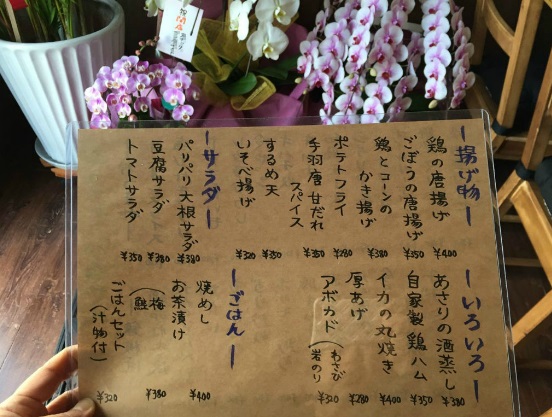 ー揚げ物ー
鶏の唐揚げ ¥400
ごぼうの唐揚げ ¥350
鶏とコーンの
かき揚げ ¥380
ポテトフライ ¥280
手羽唐 甘だれ
スパイス ¥350
するめ天 ¥350
いそべ揚げ ¥320
ーサラダー
パリパリ大根サラダ ¥380
豆腐サラダ ¥380
トマトサラダ ¥350
ーいろいろー
あさりの酒蒸し ¥380
自家製鶏ハム ¥350
イカの丸焼き ¥400
厚あげ ¥280
アボカド(わさび
岩のり ¥320
ーごはんー
焼めし ¥400
お茶漬け
(梅
鮭) ¥380
ごはんセット
(汁物付) ¥320